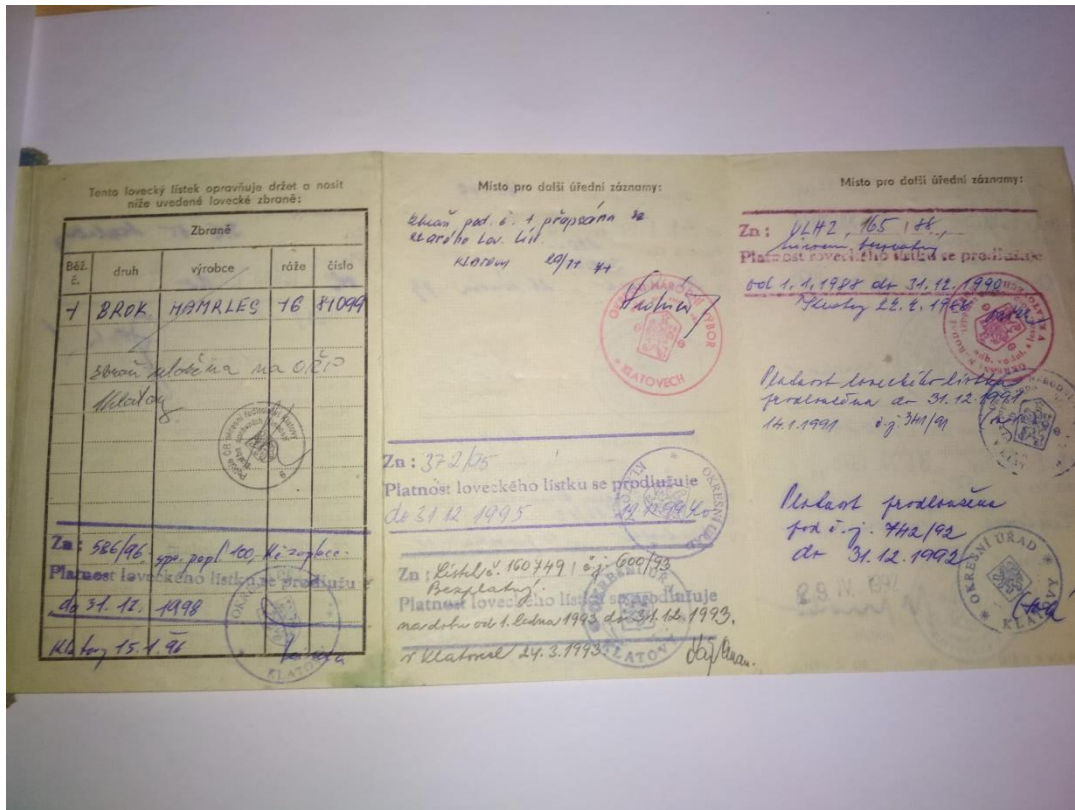 Tento lovecký lístek opravňuje držet a nosit
níže uvedené lovecké zbraně:
Zbraně
Běž. č.
druh
výrobce
ráže
číslo
1 BROK HAMRLES 16 81099
zbraň uložena na
Klatovy
Zn: 586/96. spr. popl. 100,- Kč
Platnost loveckého lístku se prodlužuje
do 31. 12. 1998
Klatovy 15.1.96
KLATOVY
Místo pro další úřední záznamy:
Zbraň pod. č. 1 přepsána ze
starého lov. líst.
Klatovy 20/11
OKRESNÍ NÁRODNÍ VÝBOR
KLATOVECH
Zn: 372/95
Platnost loveckého lístku se prodlužuje
do 31. 12. 1995
OKRESNÍ ÚŘAD
Zn: Lístek č. 160749 č.j. 600/93
Bezplatný
Platnost loveckého lístku se prodlužuje
na dobu od 1. ledna 1993 do 31.12.1993.
v Klatovech 24.3.1993.
OKRESNÍ ÚŘAD
KLATOVY
Místo pro další úřední záznamy:
Zn: VLHZ, 165/88
Platnost loveckého lístku se prodlužuje
od 1.1.1988 do 31.12.1990
Platnost loveckého lístku
prodloužena do 31.12.1991
14.1.1991 č.j. 341/91
Platnost prodloužena
pod č.j. 742/92
do 31.12.1992
29. IV. 1992
OKRESNÍ ÚŘAD
KLATOVY